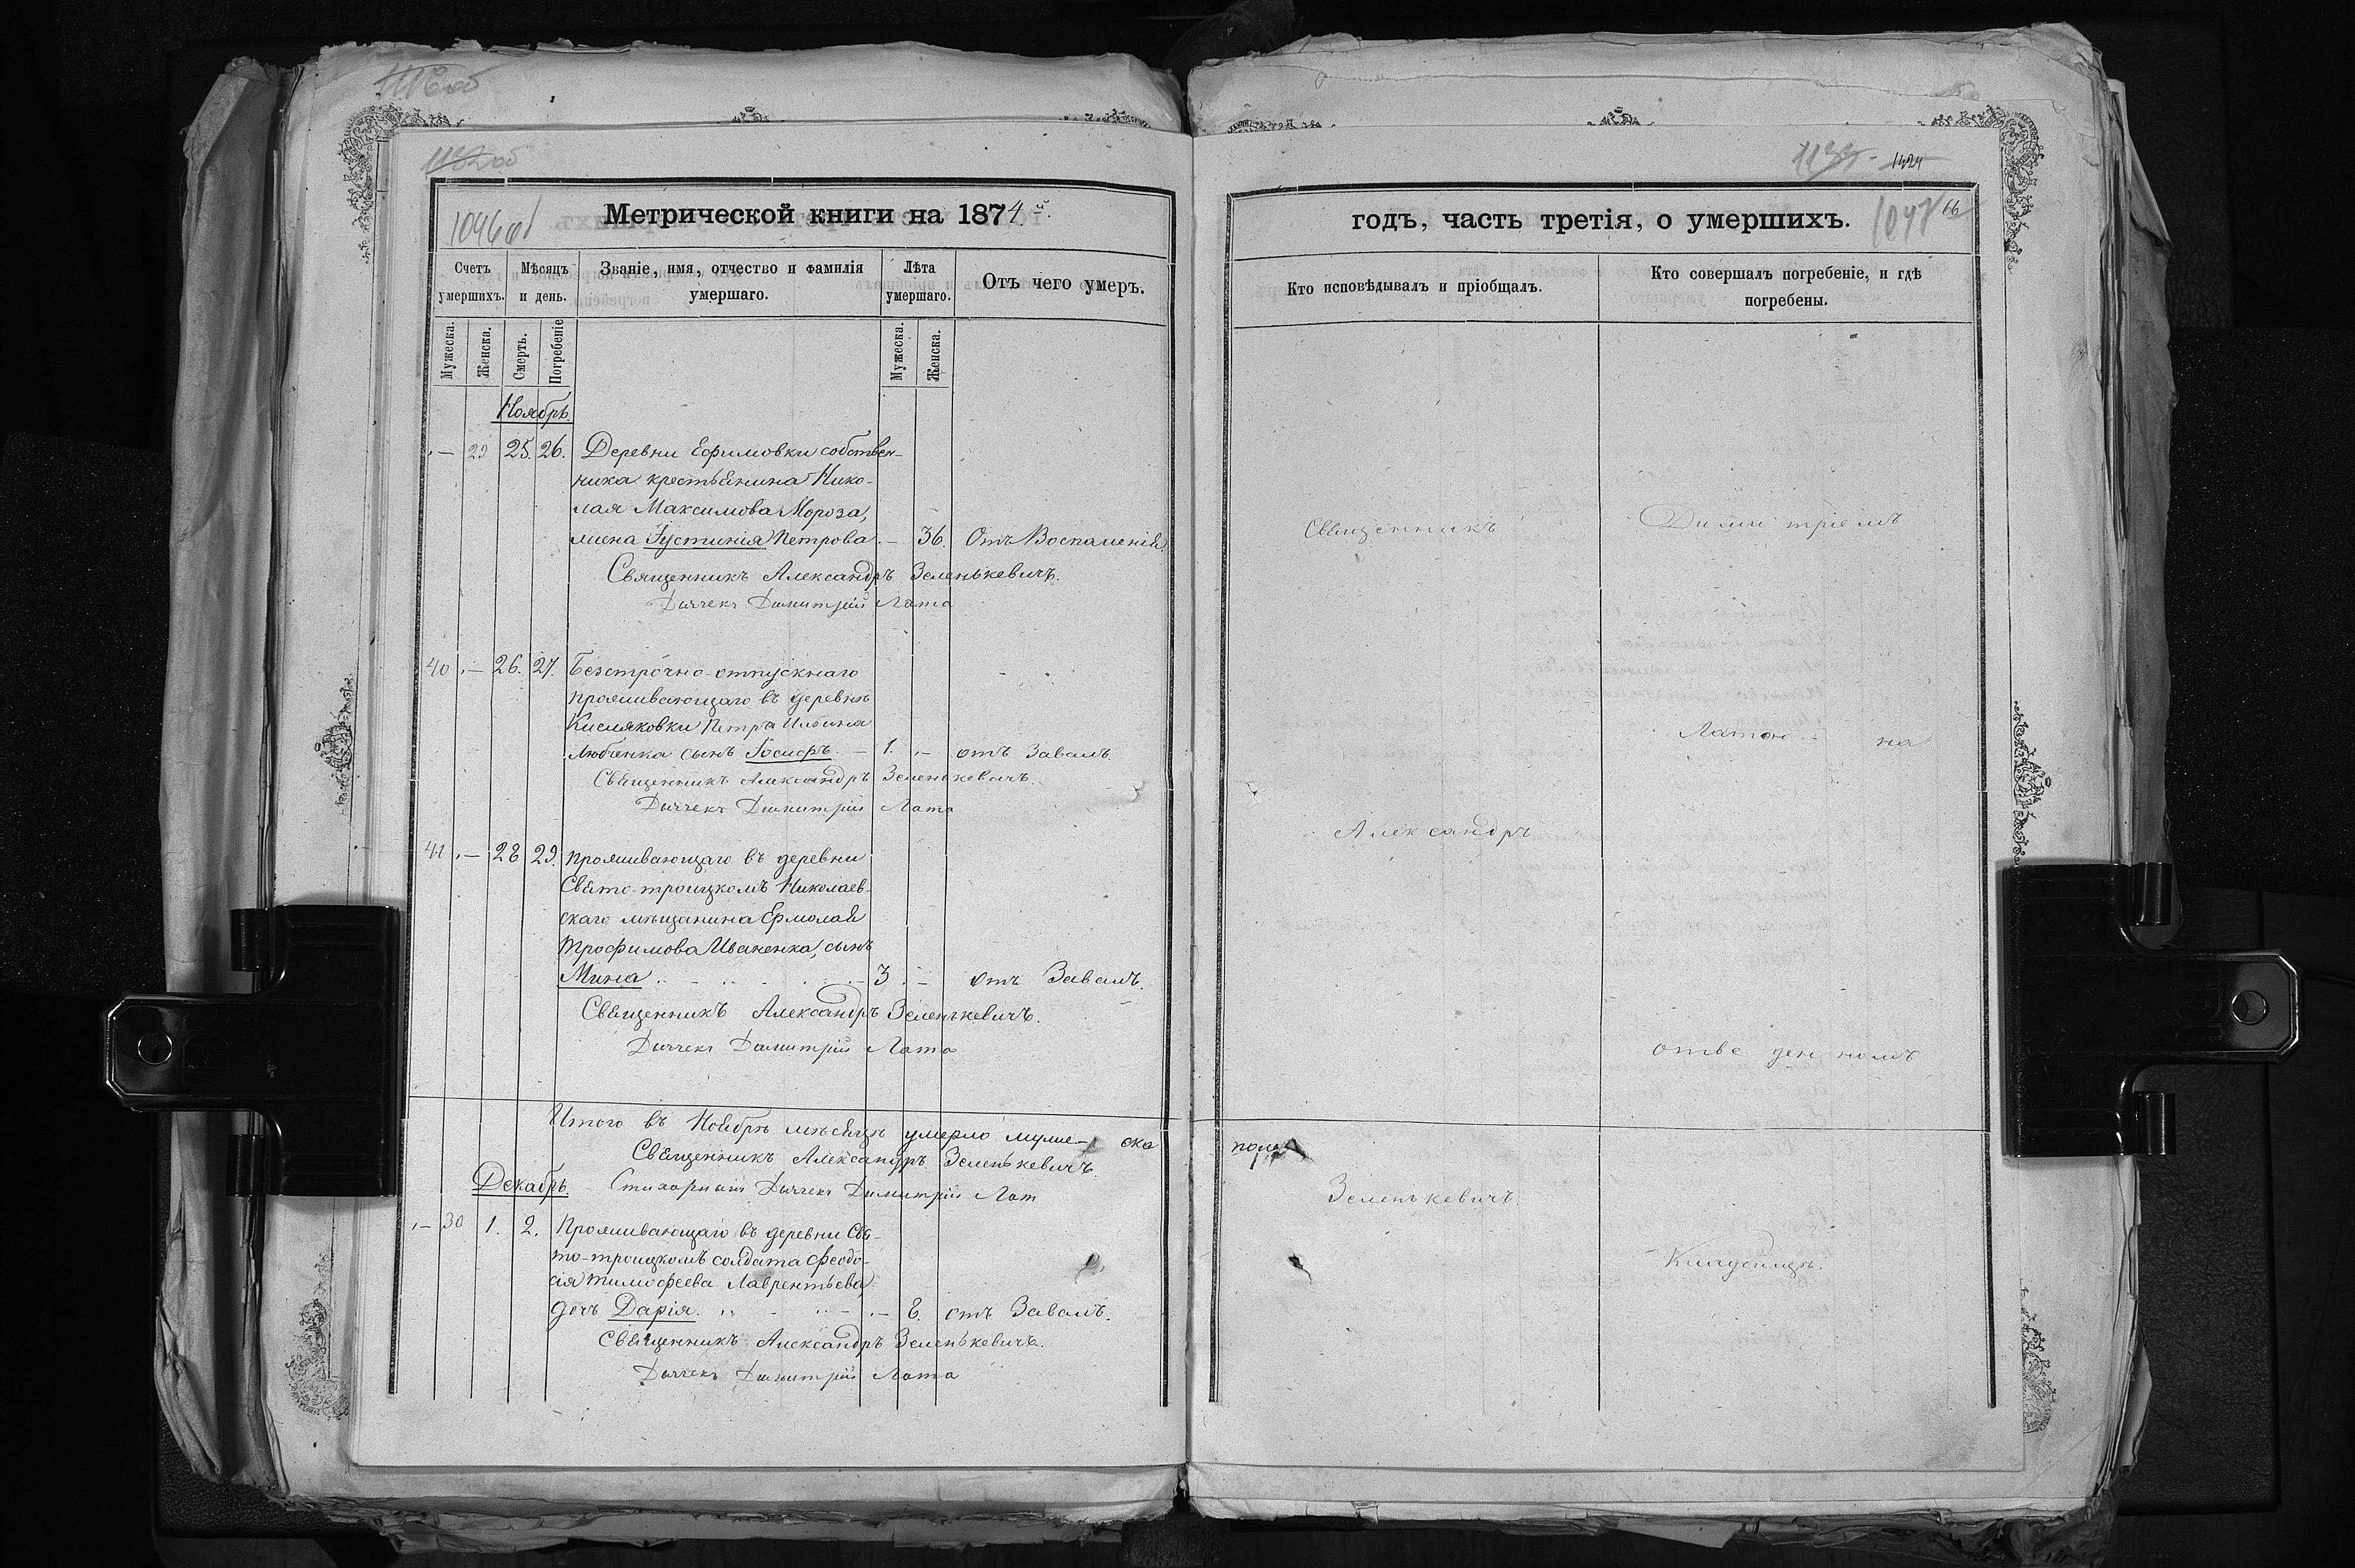 1132об
1046об
Метрической книги на 1874й.
Счетъ умершихъ.
Мѣсяцъ и день.
Званіе, имя, отчество и фамилія умершаго.
Лѣта умершаго.
Отъ чего умеръ.
Мужеска.
Женска.
Смерть.
Погребеніе
Мужеска.
Женска.
Ноябрь
- 29 25. 26. Деревни Ефимовки собствен-
ника крестьянина Нико-
лая Максимова Мороза,
жена Іустинія Петрова - 36. Отъ Воспаленія.
Священникъ Александръ Зеленькевичъ.
Дьячекъ Димитрій Лата
40 - 26. 27. Безсрочно-отпускнаго
проживающаго въ деревнѣ
Кисляковки Петра Ильина
Любенка сынъ Іосифъ - 1. - отъ Завалъ.
Священникъ Александръ Зеленькевичъ.
Дьячекъ Димитрій Лата
41 - 28 29. Проживающаго въ деревни
Свято-троицкомъ Николаев-
скаго мѣщанина Ермолая
Трофимова Иваненка, сынъ
Мина - 3 - отъ Завалъ.
Священникъ Александръ Зеленькевичъ.
Дьячекъ Димитрій Лата
Итого въ Ноябрѣ мѣсяцѣ умерло муже- ска
Священникъ Александръ Зеленькевичъ
Декабрь. Стихарный Дьячекъ Димитрій Лат
- 30 1. 2. Проживающаго въ деревни Свя-
то-троицкомъ солдата Феодо-
сія Тимофеева Лаврентьева
дочь Дарія - 8. отъ Завалъ.
Священникъ Александръ Зеленькевичъ.
Дьячекъ Димитрій Лата
1133 1324
годъ, часть третія, о умершихъ.
1047 66
Кто исповѣдывалъ и пріобщалъ.
Кто совершалъ погребеніе, и гдѣ погребены.
Священникъ
Димитріемъ
Латою на
Александръ
отве ден номъ
пола
Зеленькевичъ.
Кладбищѣ.